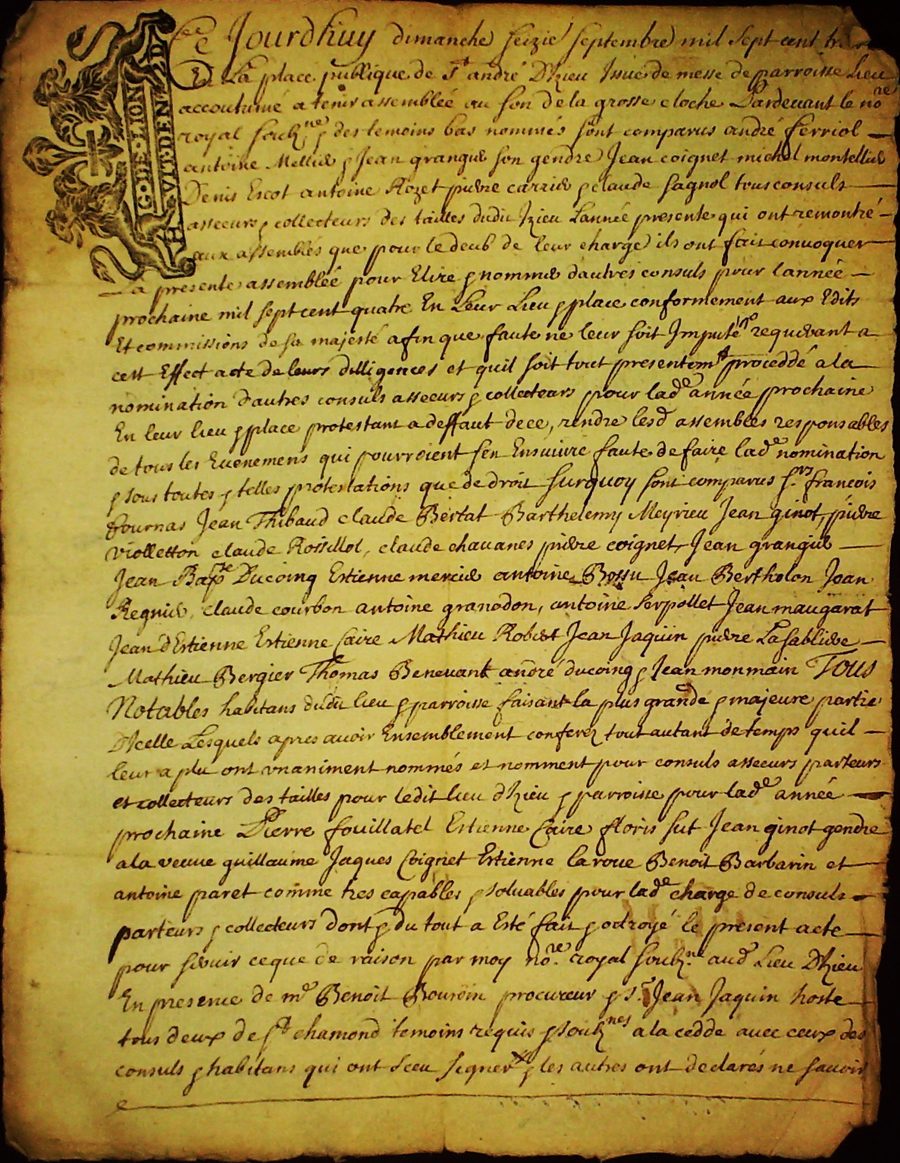 G. DE. LION
HVIT. DEN.
Ce Jourdhuy dimanche seizie septembre mil sept cent
En La place publique de St andré Dhzieu Issue de messe de parroisse Lieu
accoutumé a tenir assemblée au son de la grosse cloche Pardevant le nore
royal soubzne & des temoins bas nommés sont comparus andré ferriol
antoine Mellier & Jean granger son gendre Jean coignet michel montellier
Denis Escot antoine Rozet pierre carrier & claude fagnol tous consuls
asseeurs & collecteurs des tailles dudit Izieu Lannée presente qui ont remontré
aux assemblés que pour le deub de leur charge ils ont fait convoquer
la presente assemblée pour Elire & nommer dautres consuls pour lannée
prochaine mil sept cent quatre En Leur Lieu & place conformement aux Edits
Et commissions de sa majesté afin que faute ne leur soit Imputé requerant a
cest Effect acte de leurs dilligences et quil soit tout presentemt proceddé a la
nomination dautres consuls asseeurs & collecteurs pour lade année prochaine
En leur lieu & place protestant a deffaut dece, rendre lesd assemblés responsables
de tous les Evenemens qui pourroient sen Ensuivre faute de faire lade nomination
& sous toutes & telles protestations que de droit surquoy sont comparus srs francois
fournas Jean Thibaud claude Bertat Barthelemy Meyrieu Jean ginot, pierre
violletton claude Rossillol, claude chavanes pierre coignet, Jean granger
Jean Bapte Ducoing Estienne mercier antoine Bossu Jean Bertholon Jean
Regnier, claude courbon antoine granodon, antoine serpollet Jean maugarat
Jean dEstienne Estienne Caire Mathieu Robert Jean Jaquin pierre La sabliere
Mathieu Bergier Thomas Benevant andré ducoing & Jean monmain Tous
Notables habitans dudit lieu & parroisse faisant la plus grande & majeure partie
Dicelle Lesquels apres avoir Ensemblement conferez tout autant de temps quil
leur a plu ont vnaniment nommés et nomment pour consuls asseeurs parteurs
et collecteurs des tailles pour ledit lieu dhzieu & parroisse pour lade année
prochaine Pierre fouillatel Estienne Caire floris fut Jean ginot gendre
a la veuve guillaume Jaques Coignet Estienne la roue Benoit Barbarin et
antoine paret comme tres capables & solvables pour lade charge de consuls
parteurs & collecteurs dont & du tout a Esté fait & octroyé le present acte
pour servir ce que de raison par moy nore royal soubzne aud Lieu Dhzieu
En presence de me Benoit Bourdin procureur & sr Jean Jaquin hoste
tous deux de st chamond temoins requis & soubznes a la cedde avec ceux des
consuls & habitans qui ont sceu signer & les autres ont declarés ne savoir